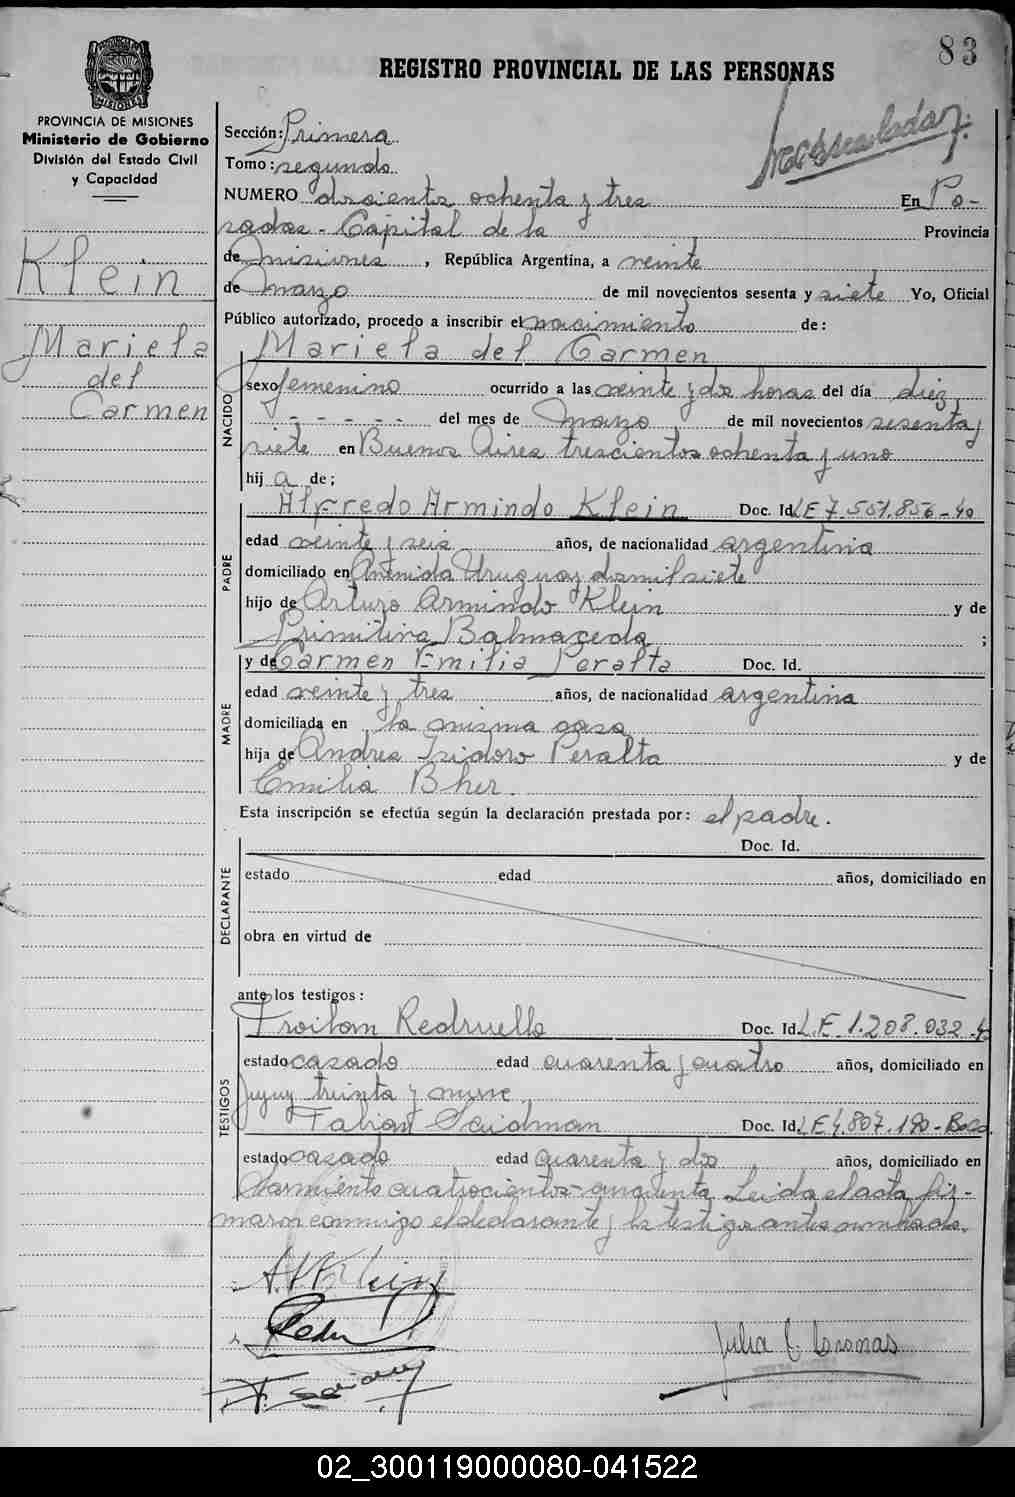 83
REGISTRO PROVINCIAL DE LAS PERSONAS
PROVINCIA DE MISIONES
Ministerio de Gobierno
División del Estado Civil
y Capacidad
Klein
Mariela
del
Carmen
Sección: Primera
Tomo: segundo
NUMERO doscientos ochenta y tres En Po-
sadas - Capital de la Provincia
de Misiones, República Argentina, a veinte
de Marzo de mil novecientos sesenta y siete Yo, Oficial
Público autorizado, procedo a inscribir el nacimiento de:
Mariela del Carmen
NACIDO
sexo femenino ocurrido a las veinte y dos horas del día diez
- - - - - del mes de Marzo de mil novecientos sesenta y
siete en Buenos Aires trescientos ochenta y uno
hij a de;
Alfredo Armindo Klein Doc. Id. LE 7.551.856-40
PADRE
edad veinte y seis años, de nacionalidad argentina
domiciliado en Avenida Uruguay dos mil siete
hijo de Arturo Armindo Klein y de
Primitiva Balmaceda ;
y de Carmen Emilia Peralta Doc. Id.
MADRE
edad veinte y tres años, de nacionalidad argentina
domiciliada en la misma casa
hija de Andrés Isidoro Peralta y de
Emilia Bher.
Esta inscripción se efectúa según la declaración prestada por: el padre.
Doc. Id.
DECLARANTE
estado edad años, domiciliado en
obra en virtud de
ante los testigos:
Troilan Redruello Doc. Id. L.E 1.208.032-
TESTIGOS
estado casado edad cuarenta y cuatro años, domiciliado en
Jujuy treinta y nueve
Fabian Seidman Doc. Id. LE 4.807.190-
estado casado edad cuarenta y dos años, domiciliado en
Sarmiento cuatrocientos cincuenta. Leida el acta fir-
maron conmigo el declarante y los testigos antes nombrados.
A. A. Klein
Julia C Coronas
02_300119000080-041522